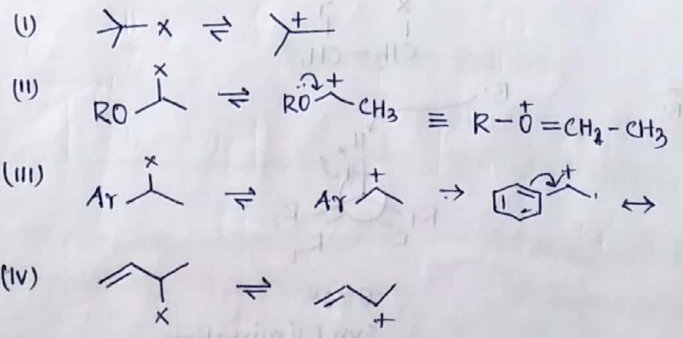 (I) X ⇌ +
(II) RO X ⇌ RO + CH3 ≡ R-O+=CH2-CH3
(III) Ar X ⇌ Ar + → + ↔
(IV) X ⇌ +